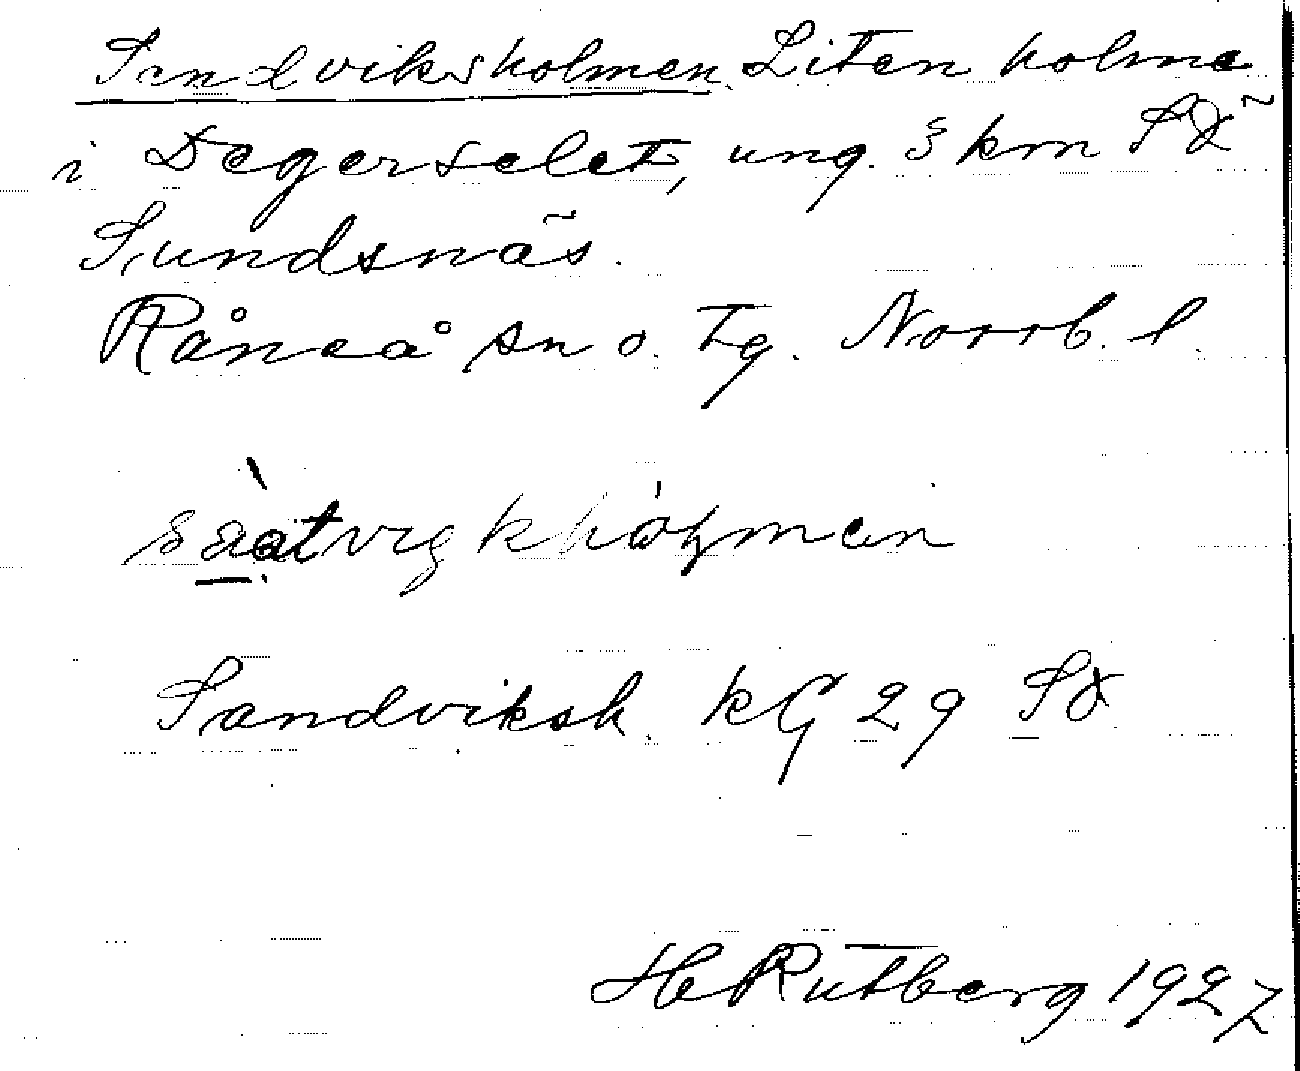 Sandviksholmen Liten holme
i Degerselet, ung. 3 km SÖ
Sundsnäs.
Råneå sn o. tg. Norrb. l.
Sandviksh. kG 29 SÖ
H Rutberg 1927